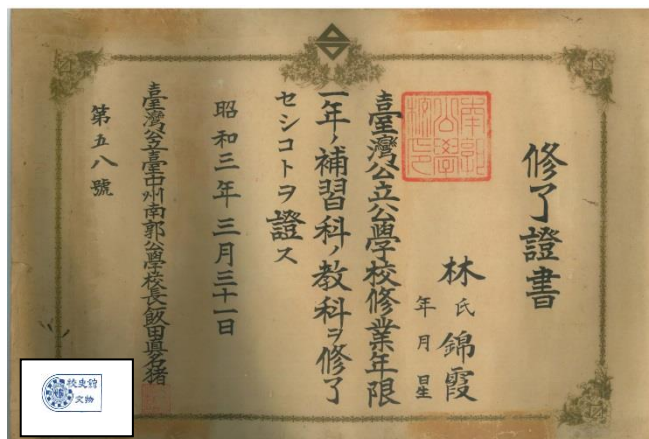 修了證書
林氏錦霞
年月日生
臺灣公立公學校修業年限
一年ノ補習科ノ教科ヲ修了
セシコトヲ證ス
昭和三年三月三十一日
臺灣公立臺中州南郭公學校長飯田真名猪
第五八號
南郭
公學
校印
校史館
文物